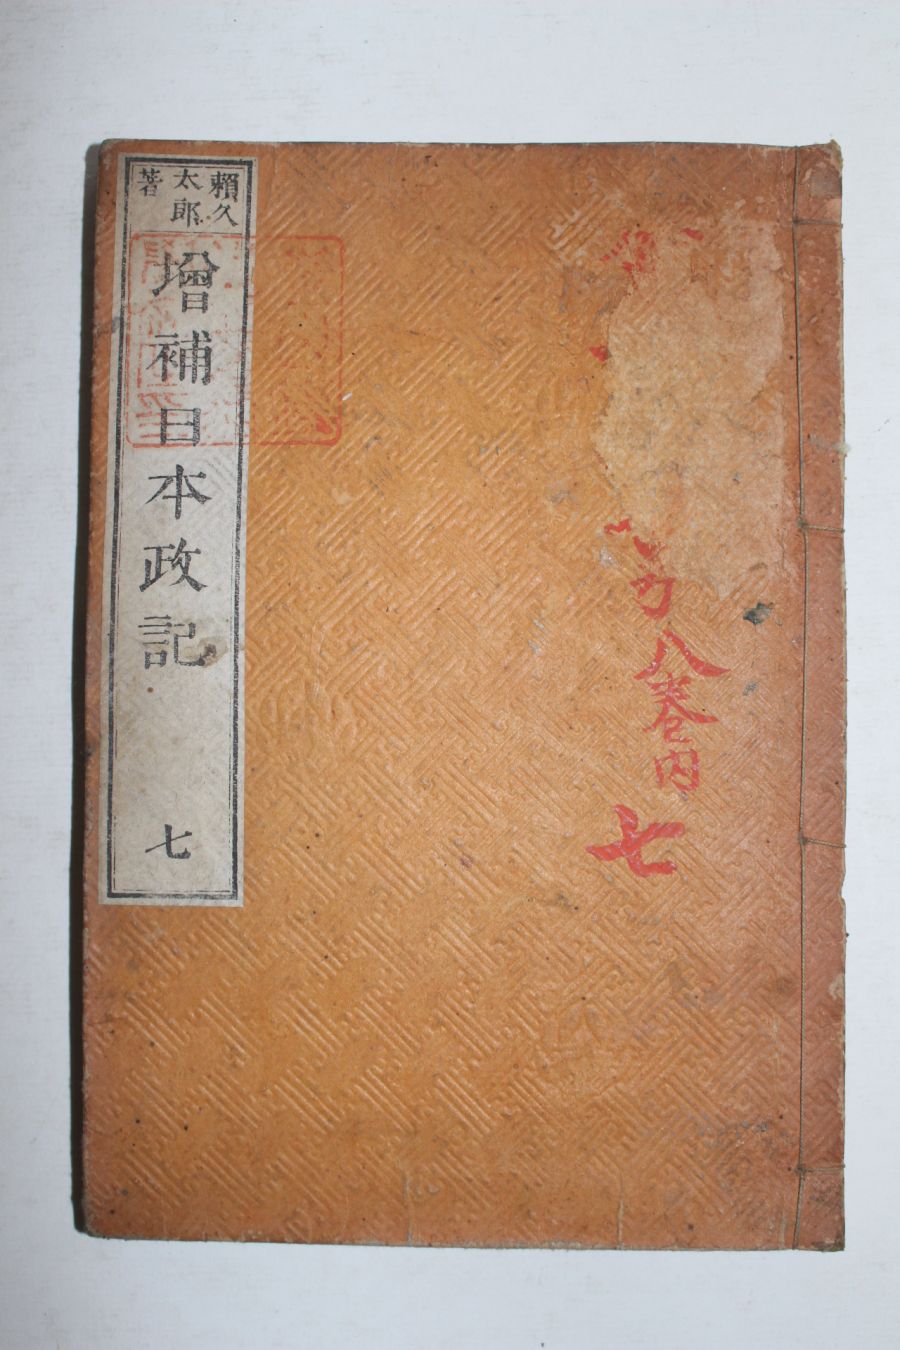 八巻内
七
賴久
太郎
著
增補日本政記
七